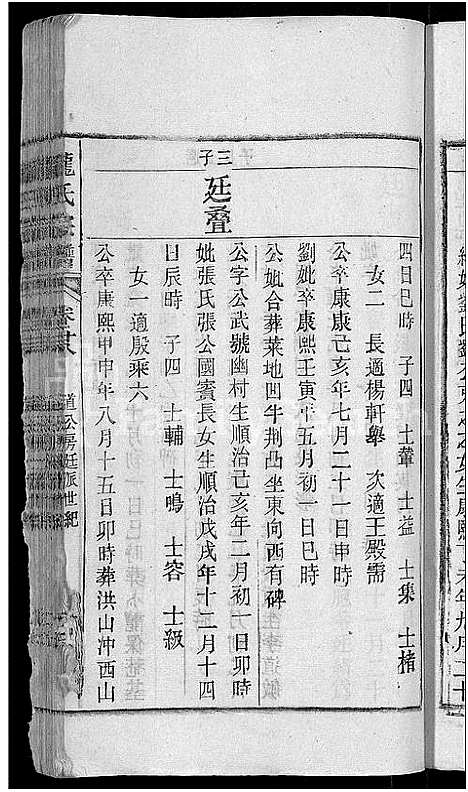 三子
廷叠
四日巳時　子四　士輋　士益　士集　士楮
女二　長適楊軒舉　次適王殿霈
公卒康康己亥年七月二十一日申時
劉妣卒康熙壬寅年五月初一日巳時
公妣合葬萊地凹牛荆凸坐東向西有碑
公字公武號幽村生順治己亥年二月初一日卯時
妣張氏張公國賓長女生順治戊戌年十二月十四
日辰時　子四　士輔　士鳴　士容　士級
女一適殷乘六
公卒康熙甲申年八月十五日卯時葬洪山冲西山
龍氏宗譜
卷
道公房廷派世紀